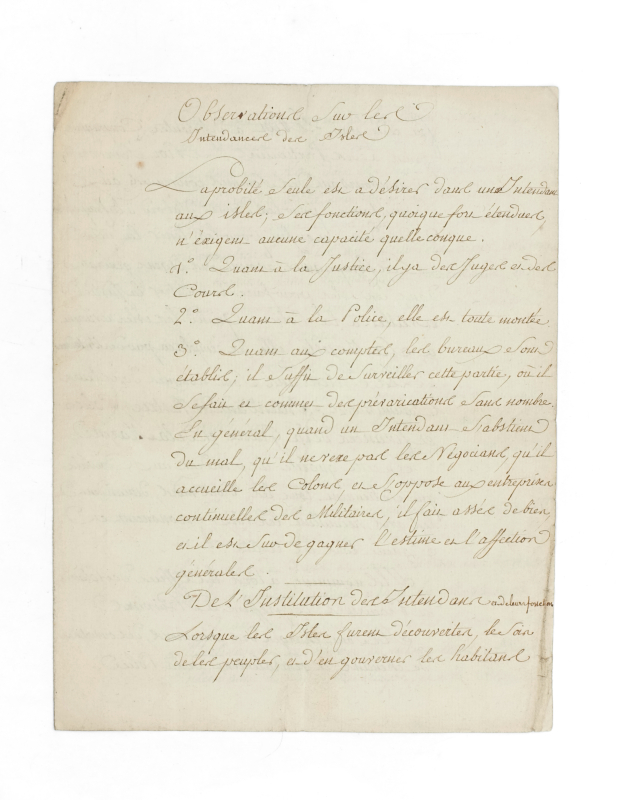 Observations sur les
Intendances des Isles
La probité Seule est a désirer dans un Intendant
aux isles; Ses fonctions, quoique fort étendues
n'éxigent aucune capacité quelleconque.
1.° Quant à la Justice, il y a des Juges et des
Cours.
2.° Quant à la Police, elle est toute montée
3.° Quant aux comptes, les bureaux sont
établis; il Suffit de Surveiller cette partie, où il
Se fait et commet des prévarications Sans nombre.
En général, quand un Intendant S'abstient
du mal, qu'il ne vexe pas les Négocians, qu'il
accueille les Colons, et S'oppose aux entreprises
continuelles des Militaires, il fait assés de bien,
et il est Sur de gagner l'estime et l'affection
générales.
De l'Institution des Intendans et de leurs fonctions
Lorsque les Isles furent découvertes, le Soin
de les peupler, et d'en gouverner les habitans